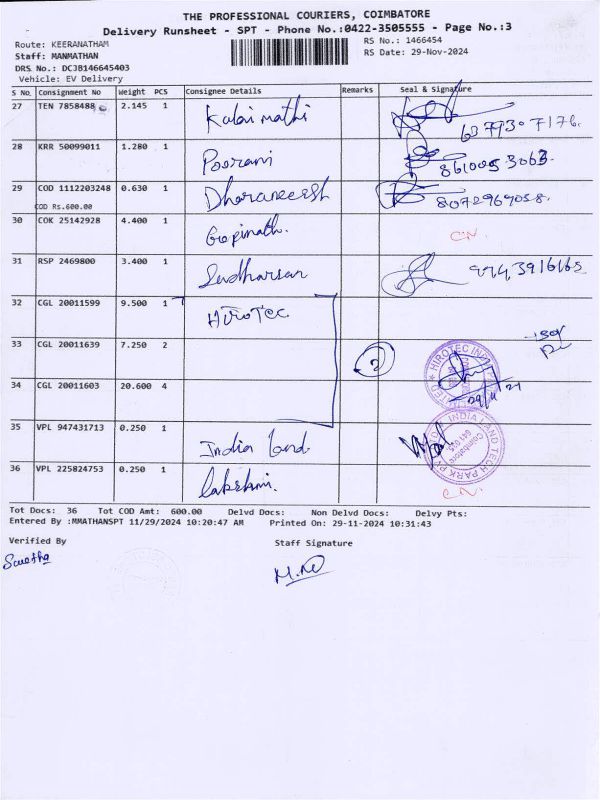 THE PROFESSIONAL COURIERS, COIMBATORE
Delivery Runsheet - SPT - Phone No.:0422-3505555 - Page No.:3
Route: KEERANATHAM
RS No.: 1466454
Staff: MANMATHAN
RS Date: 29-Nov-2024
DRS No.: DCJB146645403
Vehicle: EV Delivery
S No. Consignment No Weight PCS Consignee Details Remarks Seal & Signature
27 TEN 7858488 2.145 1 Kalaimathi
28 KRR 50099011 1.280 1 Poorani 8610053063.
29 COD 1112203248 0.630 1 Dharaneesh 8072969058.
COD Rs.600.00
30 COK 25142928 4.400 1 Gopinath. CN.
31 RSP 2469800 3.400 1 Sudharsan 9943916165
32 CGL 20011599 9.500 1 HiroTec
33 CGL 20011639 7.250 2
34 CGL 20011603 20.600 4
35 VPL 947431713 0.250 1 India land.
36 VPL 225824753 0.250 1 lakshmi. CN.
Tot Docs: 36 Tot COD Amt: 600.00 Delvd Docs: Non Delvd Docs: Delvy Pts:
Entered By :MMATHANSPT 11/29/2024 10:20:47 AM Printed On: 29-11-2024 10:31:43
Verified By Staff Signature